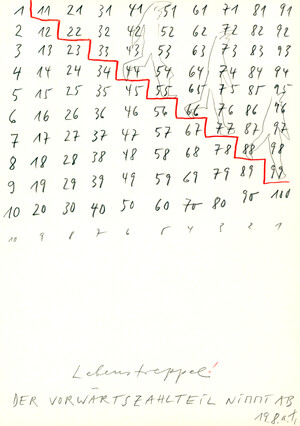 1 11 21 31 41 51 61 71 81 91
2 12 22 32 42 52 62 72 82 92
3 13 23 33 43 53 63 73 83 93
4 14 24 34 44 54 64 74 84 94
5 15 25 35 45 55 65 75 85 95
6 16 26 36 46 56 66 76 86 96
7 17 27 37 47 57 67 77 87 97
8 18 28 38 48 58 68 78 88 98
9 19 29 39 49 59 69 79 89 99
10 20 30 40 50 60 70 80 90 100
10 9 8 7 6 5 4 3 2 1
Lebenstreppe!
DER VORWÄRTSZAHLTEIL NIMMT AB